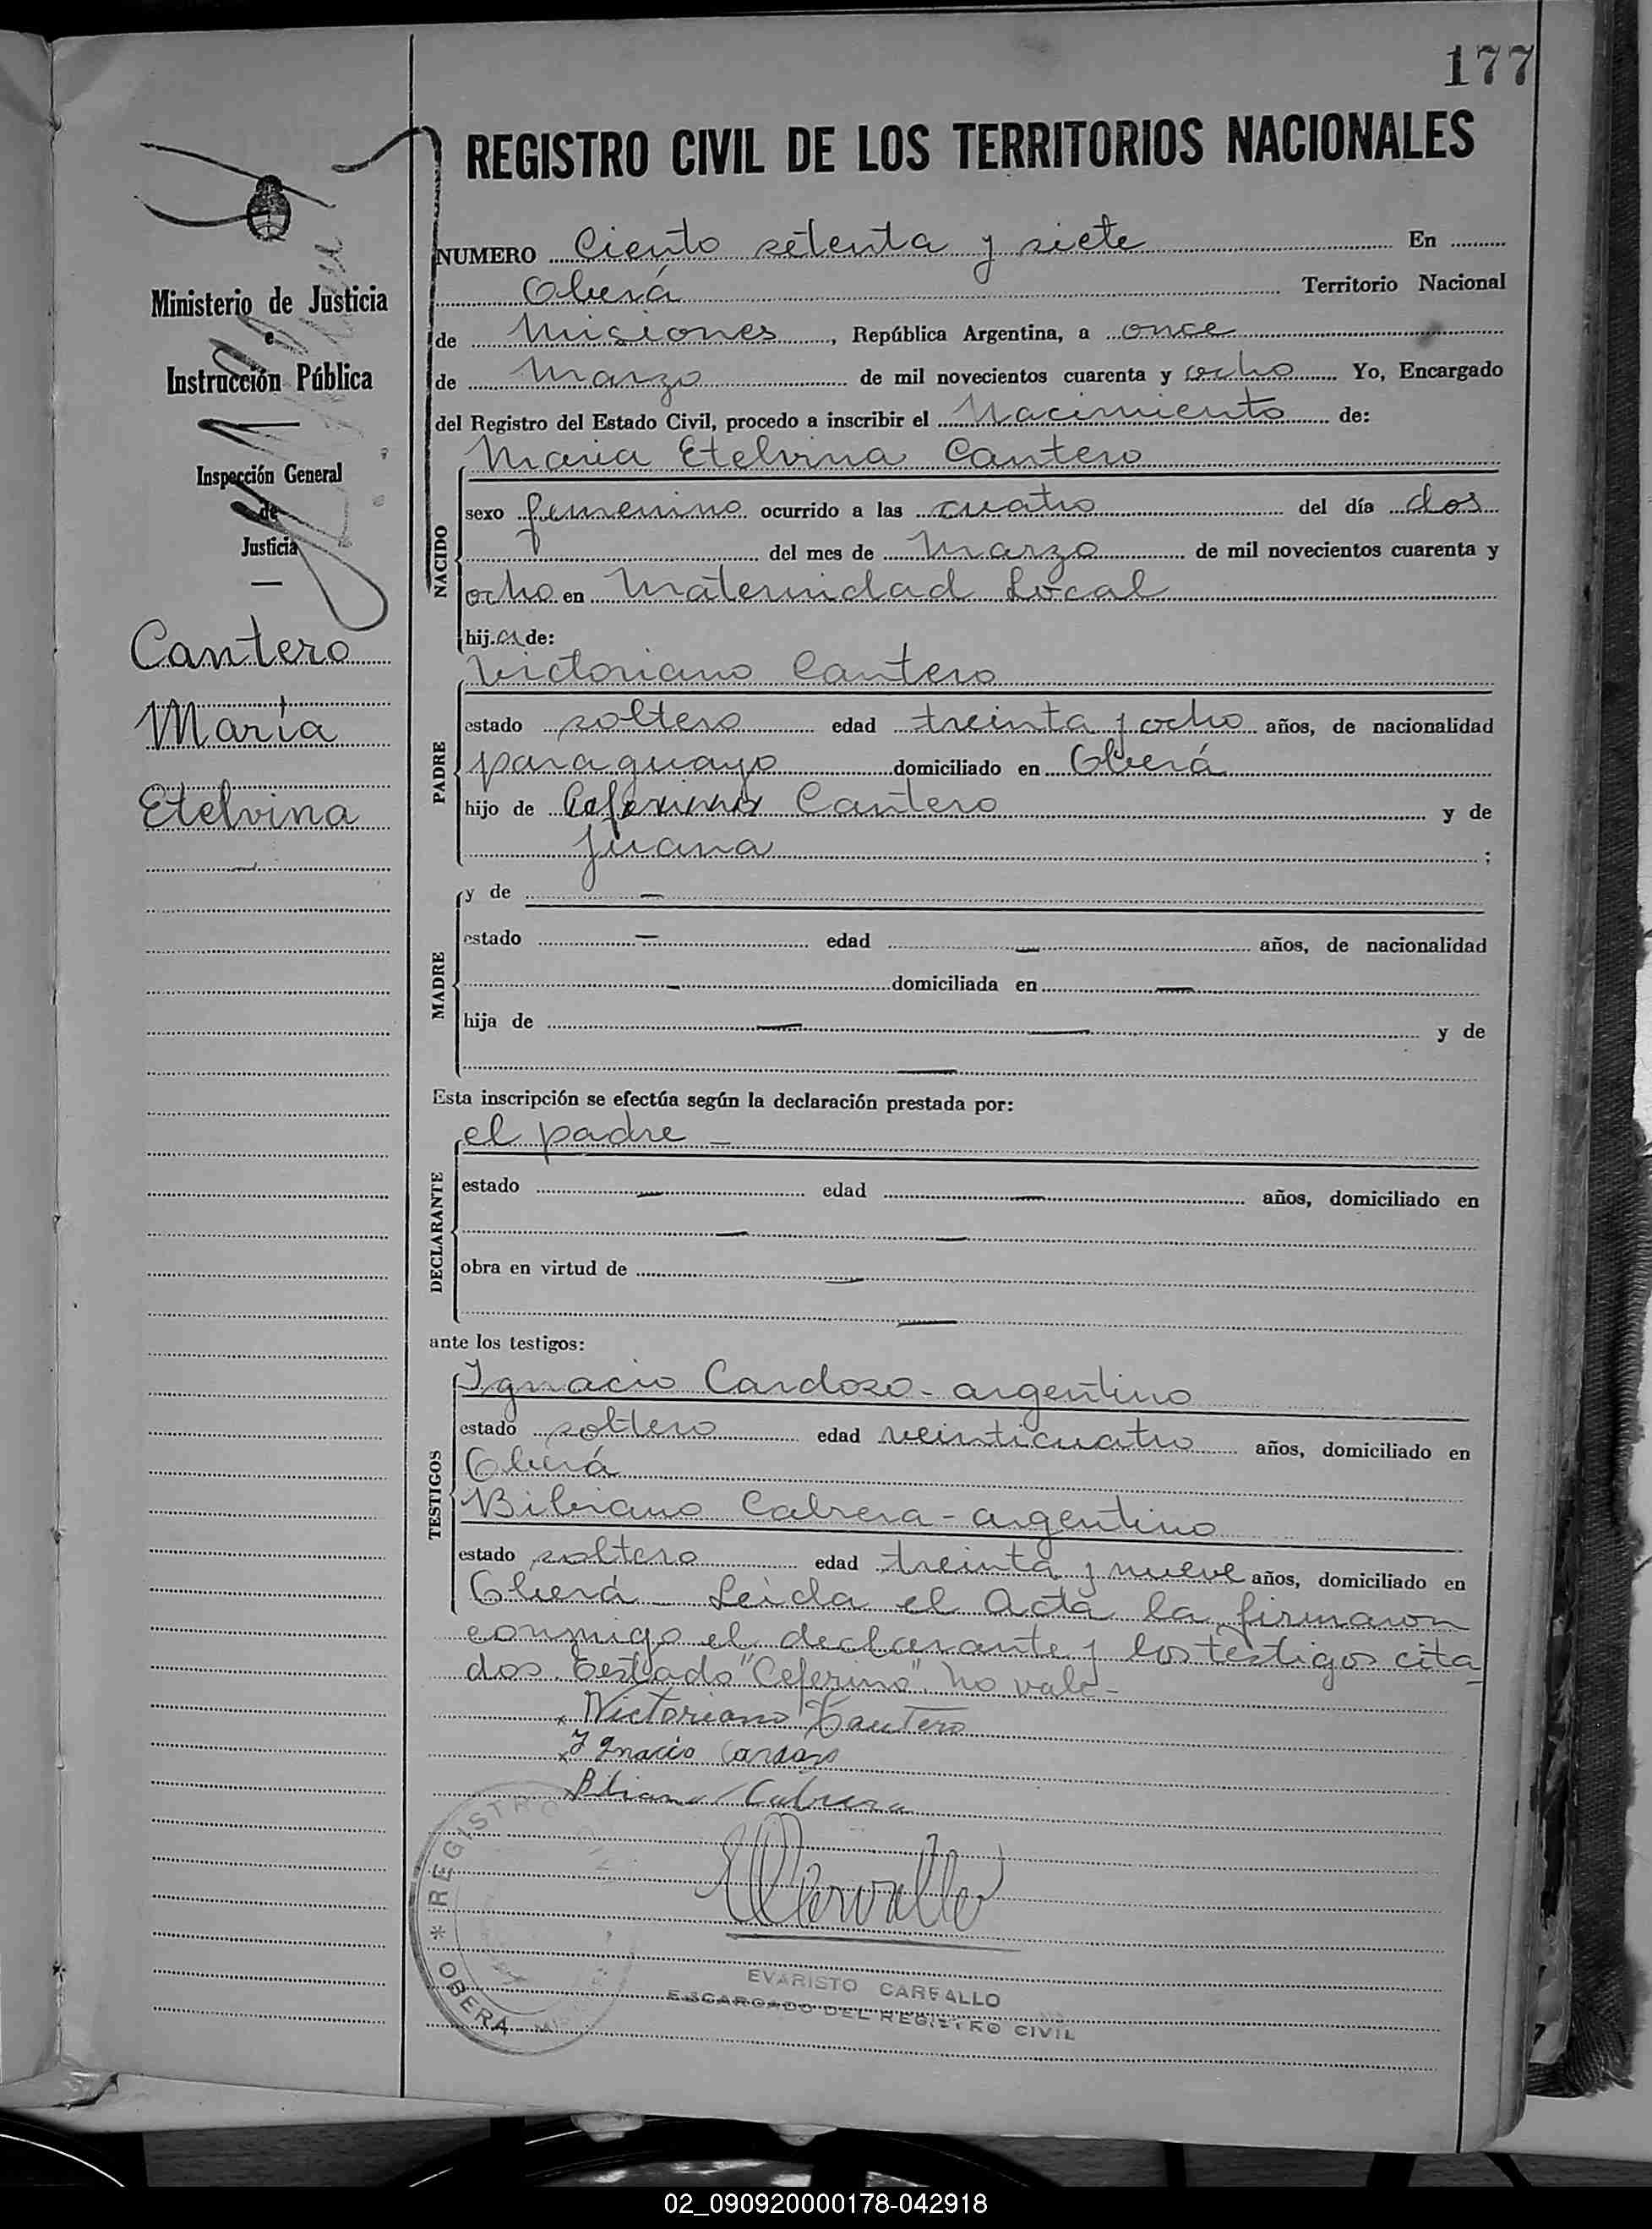 177
REGISTRO CIVIL DE LOS TERRITORIOS NACIONALES
Ministerio de Justicia
e
Instrucción Pública
Inspección General
de
Justicia
Cantero
María
Etelvina
NUMERO Ciento setenta y siete En
Oberá Territorio Nacional
de Misiones, República Argentina, a once
de Marzo de mil novecientos cuarenta y ocho Yo, Encargado
del Registro del Estado Civil, procedo a inscribir el Nacimiento de:
NACIDO
Maria Etelvina Cantero
sexo femenino ocurrido a las cuatro del día dos
del mes de Marzo de mil novecientos cuarenta y
ocho en Maternidad Local
hija de:
PADRE
Victoriano Cantero
estado soltero edad treinta y ocho años, de nacionalidad
paraguayo domiciliado en Oberá
hijo de Ceferino Cantero y de
Juana ;
MADRE
y de —
estado — edad — años, de nacionalidad
— domiciliada en —
hija de — — y de
—
Esta inscripción se efectúa según la declaración prestada por:
DECLARANTE
el padre —
estado — edad — años, domiciliado en
— —
obra en virtud de —
—
ante los testigos:
TESTIGOS
Ignacio Cardozo - argentino
estado soltero edad veinticuatro años, domiciliado en
Oberá
Bibiano Cabrera - argentino
estado soltero edad treinta y nueve años, domiciliado en
Oberá - Leida el Acta la firmaron
conmigo el declarante y los testigos cita
dos. Testado "Ceferino". No vale -
x Victoriano Cantero
x Ignacio Cardozo
Bibiano Cabrera
REGISTRO
* OBERA
EVARISTO CARVALLO
ENCARGADO DEL REGISTRO CIVIL
02_090920000178-042918